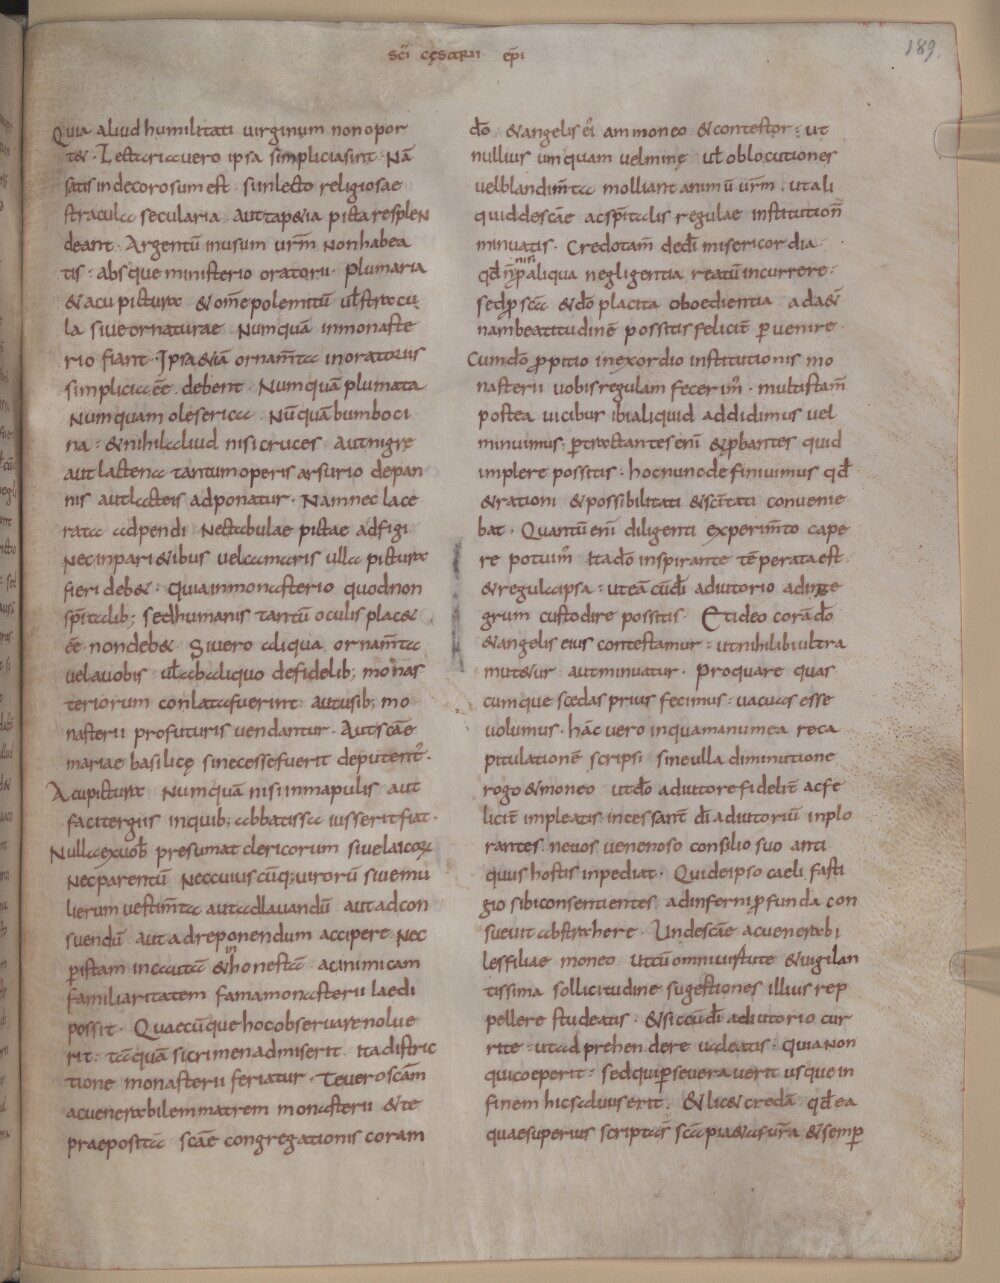 sc̄i cęsarii ep̄i
189.
Quia aliud humilitati uirginum non opor
t&. Lectaria uero ipsa simplicia sint. Nā
satis indecorosum est si in lecto religiosae
stracula secularia aut tap&ia picta resplen
deant. Argentū in usum ur̄m non habea
tis: absque ministerio oratorii. plumaria
& acupictura & om̄e polemitū ul̄ stracu
la siue ornaturae numquā in monaste
rio fiant. Ipsa &iā ornam̄ta in oratoriis
simplicia eē debent. Numquā plumata
Numquam oleserica Nūquā bumboci
na: & nihil aliud nisi cruces aut nigre
aut lactena tantum operis arsurio depan
nis aut lacteis adponatur. Nam nec lace
rata adpendi nec tabulae pictae adfigi
Nec in pari&ibus uel camaris ulla pictura
fieri deb&. Quia in monasterio quod non
sp̄italib; sed humanis tantū oculis plac&
eē non deb&. Si uero aliqua ornam̄ta
uel a uobis ul̄ ab aliquo de fidelib; monas
teriorum conlata fuerint: aut usib; mo
nasterii profuturis uendantur. Aut scāe
mariae basilicę si necesse fuerit deputent̄.
Acupicturae Numquā nisi in mapulis aut
facitergiis in quib; abbatissa iusserit fiat.
Nulla ex uob̄ presumat clericorum siue laicorū
Nec parentū nec cuiuscūq; uirorū siue mu
lierum uestim̄ta aut ad lauandū aut ad con
suendū aut ad reponendum accipere. Nec
p̄ istam incautā & inhonestā ac inimicam
familiaritatem fama monasterii laedi
possit. Quaecūque hoc obseruare nolue
rit: taquā si crimen admiserit. Ita distric
tione monasterii feriatur. Te uero scām
ac uenerabilem matrem monasterii & te
praepositā scāe congregationis coram
dō & angelis ei ammoneo & contestor: ut
nullius umquam uel minę ul̄ oblocutiones
uel blandim̄ta molliant animū ur̄m. ut ali
quid de scāe ac sp̄italis regulae institution̄
minuatis. Credo tam̄ de dī misericordia:
qd̄ n̄ nisi p̄ aliqua negligentia reatū incurrere:
sed p̄ scā & dō placita oboedientia ad a&n̄
nam beatitudinē possitis felicit̄ p̄uenire.
Cum dō p̄pitio in exordio institutionis mo
nasterii uobis regulam fecerim̄. multis tam̄
postea uicibur ibi aliquid addidimus uel
minuimus: p̄tractantes eni & p̄bantes quid
implere possitis. hoc nunc definiuimus qd̄
& rationi & possibilitati & scītati conuenie
bat. Quantū eni diligenti experim̄to cape
re potuim̄. Ita dō inspirante tēperata est
& regula ipsa: ut eā cū dī adiutorio ad inte
grum custodire possitis. Et ideo corā dō
& angelis eius contestamur: ut nihil ibi ultra
mut&ur aut minuatur. Pro qua re quas
cumque scedas prius fecimus: uacuas esse
uolumus. hāc uero in qua manu mea reca
pitulationē scripsi sine ulla diminutione
rogo & moneo ut dō adiutore fidelit̄ ac fe
licit̄ impleatis: incessant̄ dī adiutoriū inplo
rantes. ne uos uenenoso consilio suo anti
quus hostis inpediat. Qui de ipso caeli fasti
gio sibi consentientes ad inferni p̄funda con
sueuit abstrahere. Unde scāe ac uenerabi
les filiae moneo ut cū omni uirtute & uigilan
tissima sollicitudine sugestiones illius rep
pellere studeatis. & sic cū dī adiutorio cur
rite: ut adprehendere ualeatis. Quia non
qui coeperit: sed qui p̄seuerauerit usque in
finem hic saluus erit. & lic& credā qd̄ ea
quae superius scripta s̄ scā pi&as ur̄a & semp̄